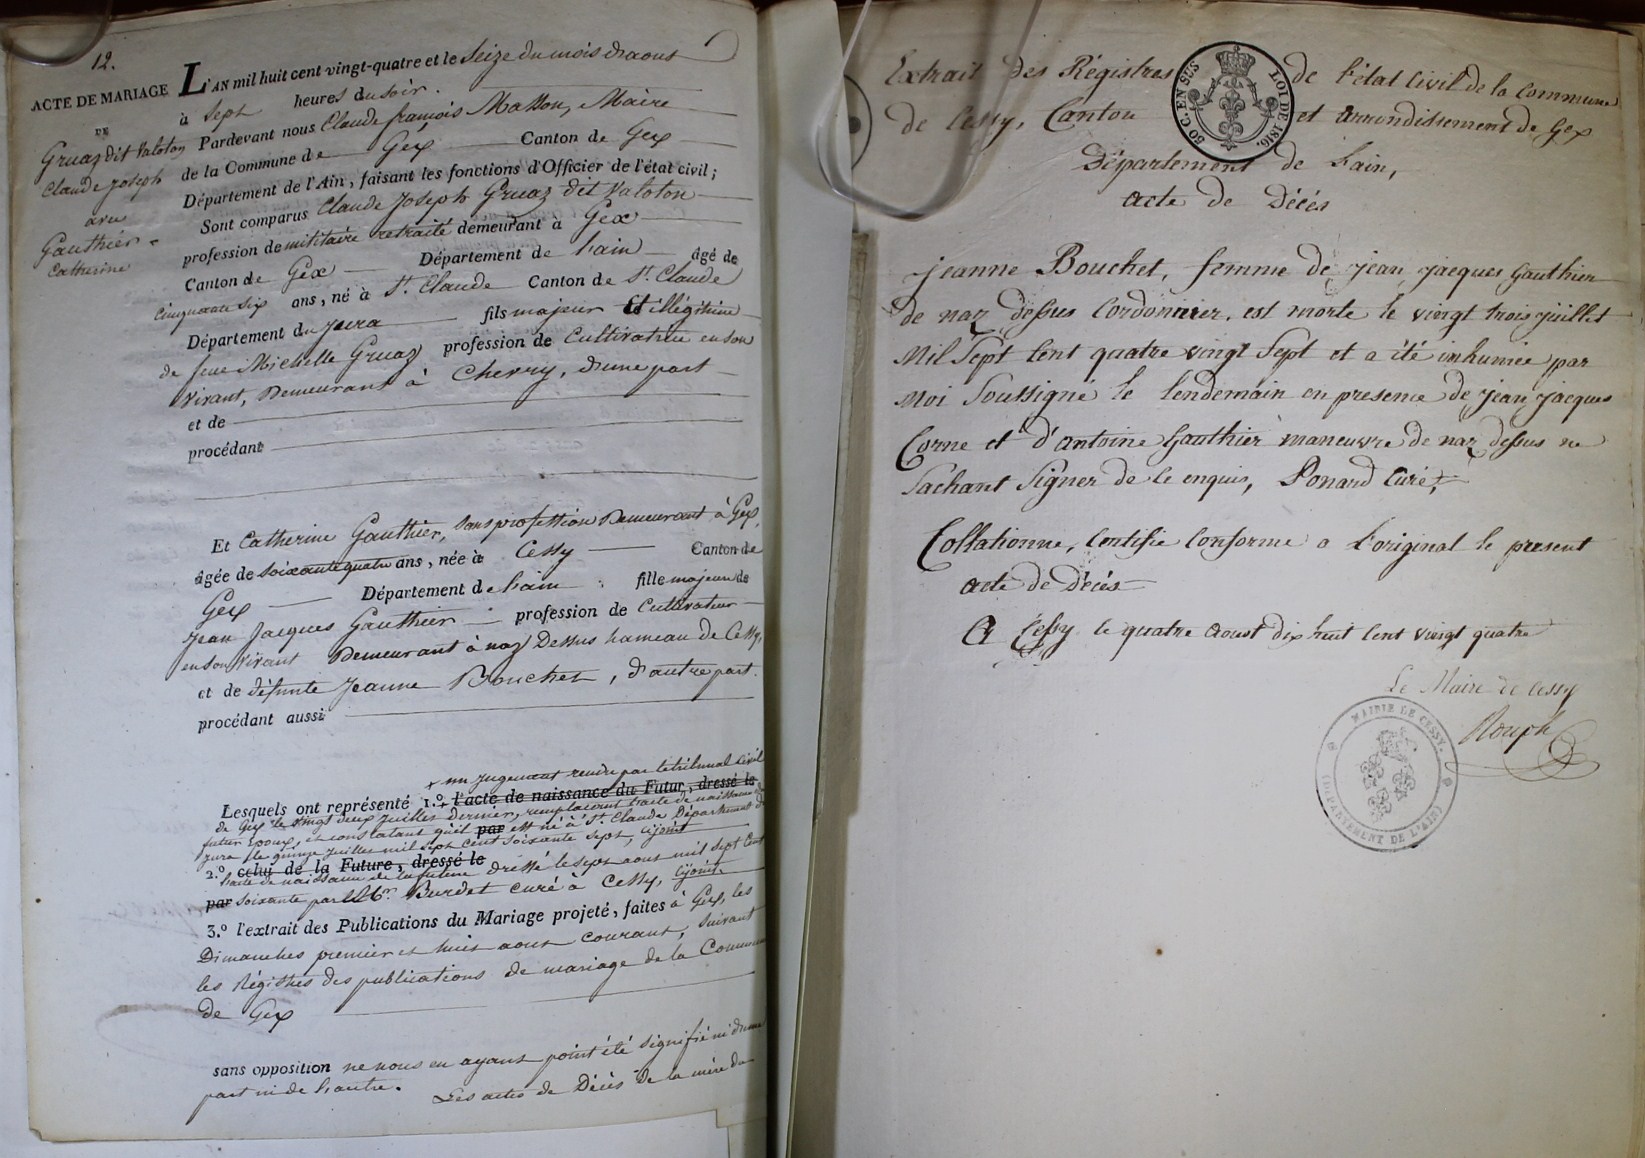 12.
ACTE DE MARIAGE
DE
Gruaz dit Valoton
Claude Joseph
avec
Gauthier
Catherine
L'AN mil huit cent vingt-quatre et le Seize du mois d'aout
à Sept heures du soir.
Pardevant nous Claude françois Masson, Maire
de la Commune de Gex Canton de Gex
Département de l'Ain, faisant les fonctions d'Officier de l'état civil;
Sont comparus Claude Joseph Gruaz dit Valoton
profession de militaire retraité demeurant à Gex
Canton de Gex Département de Lain âgé de
Cinquante Six ans, né à St. Claude Canton de St. Claude
Département du Jura fils majeur Et illégitime
de feue Michelle Gruaz profession de Cultivatrice en son
vivant, Demeurant à Chevry, d'une part
et de
procédant
Et Catherine Gauthier, Sans profession Demeurant à Gex,
âgée de Soixante quatre ans, née à Cessy Canton de
Gex Département de Lain fille majeure de
Jean Jacques Gauthier profession de Cultivateur
en son vivant Demeurant à naz Dessus hameau de Cessy,
et de défunte Jeanne Bouchet, d'autre part.
procédant aussi
+ un jugement rendu par le tribunal civil
Lesquels ont représenté 1.º + l'acte de naissance du Futur, dressé le
de Gex le vingt deux Juillet Dernier, remplaçant l'acte de naissance du
futur Epoux, et constatant qu'il par est né à St. Claude Département du
Jura le quinze Juillet mil sept cent soixante sept, cijoint
2.º celui de la Future, dressé le
l'acte de naissance de la future Dressé le sept aout mil sept cent
par soixante par Mr. Burdet curé à Cessy, cijoint.
3.º l'extrait des Publications du Mariage projeté, faites à Gex, les
Dimanches premier et huit aout courant, suivant
les Régistres des publications de mariage de la Commune
de Gex
sans opposition ne nous en ayant point été signifié ni d'une
part ni de l'autre. Les actes de Décès de la mère du
Extrait des Régistres de l'état Civil de la Commune
de Cessy, Canton et arrondissement de Gex
Département de Lain,
acte de Décés
50 C. EN SUS LOI DE 1816.
jeanne Bouchet, femme de jean jacques Gauthier
de naz dessus Cordonnier, est morte le vingt trois juillet
Mil Sept Cent quatre vingt Sept et a été inhumée par
Moi Soussigné le lendemain en presence de jean jacques
Corne et d'antoine Gauthier maneuvre de naz dessus ne
Sachant Signer de ce enquis, Ponard Curé,
Collationné, Certifié Conforme a L'original le present
acte de Décés
A Cessy le quatre Aoust dix huit Cent vingt quatre
Le Maire de Cessy
Rouph
MAIRIE DE CESSY.
(DÉPARTEMENT DE L'AIN)